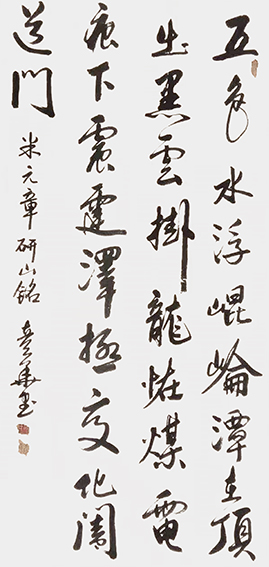 五色水浮崐崘潭在頂
出黑雲掛龍怪煤電
痕下震霆澤極变化闔
道門
米元章研山銘